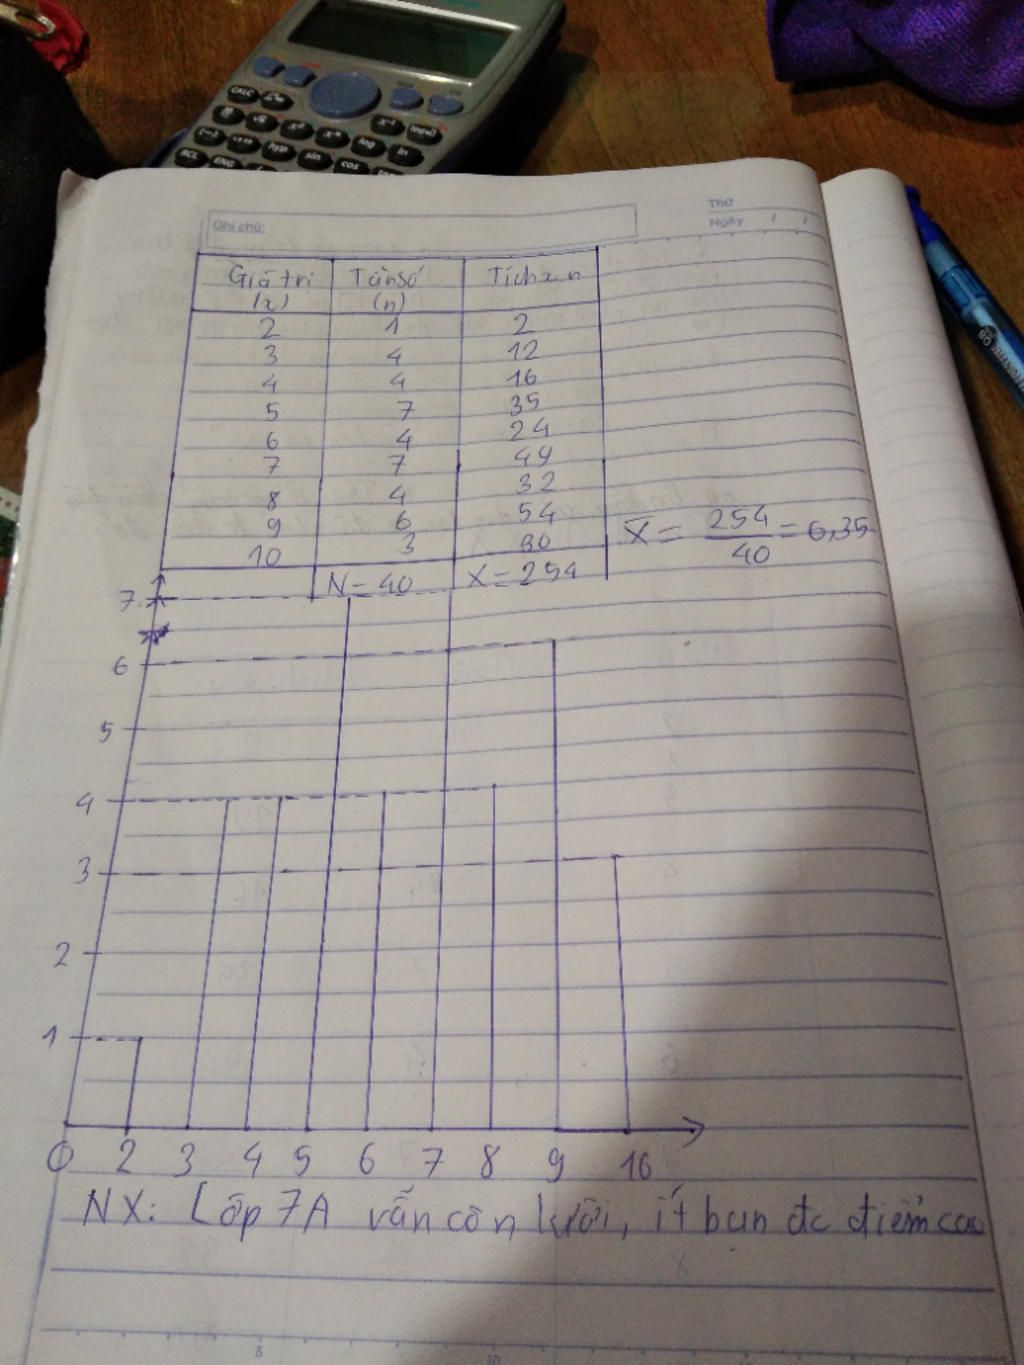 CALC
x²
x⁻¹
log
ln
hyp
sin
cos
RCL
ENG
Ghi chú:
Thứ
Ngày / /
Giá trị (x) Tần số (n) Tích x.n
2 1 2
3 4 12
4 4 16
5 7 35
6 4 24
7 7 49
8 4 32
9 6 54
10 3 30
N = 40 X = 254
X̄ = 254/40 = 6,35
7
6
5
4
3
2
1
0 2 3 4 5 6 7 8 9 10
NX: Lớp 7A vẫn còn lười, ít bạn đc điểm cao